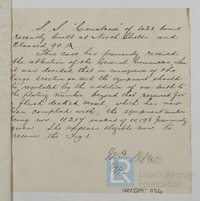 S. S. "Constance" of 1621 tons
recently built at North Shields and
Classed 90 A.
This case has previously received
the attention of the General Committee
it was decided that in consequence of the
large erection on deck the equipment should
be regulated by the addition of one tenth to
the plating number, beyond that required for
a flush decked vessel, which has now
been complied with, the equipment number
being now 11217 instead of 10,198 previously
given. She appears eligible now to
receive the fig. 1.
Lloyd's Register
Foundation
HERITAGE